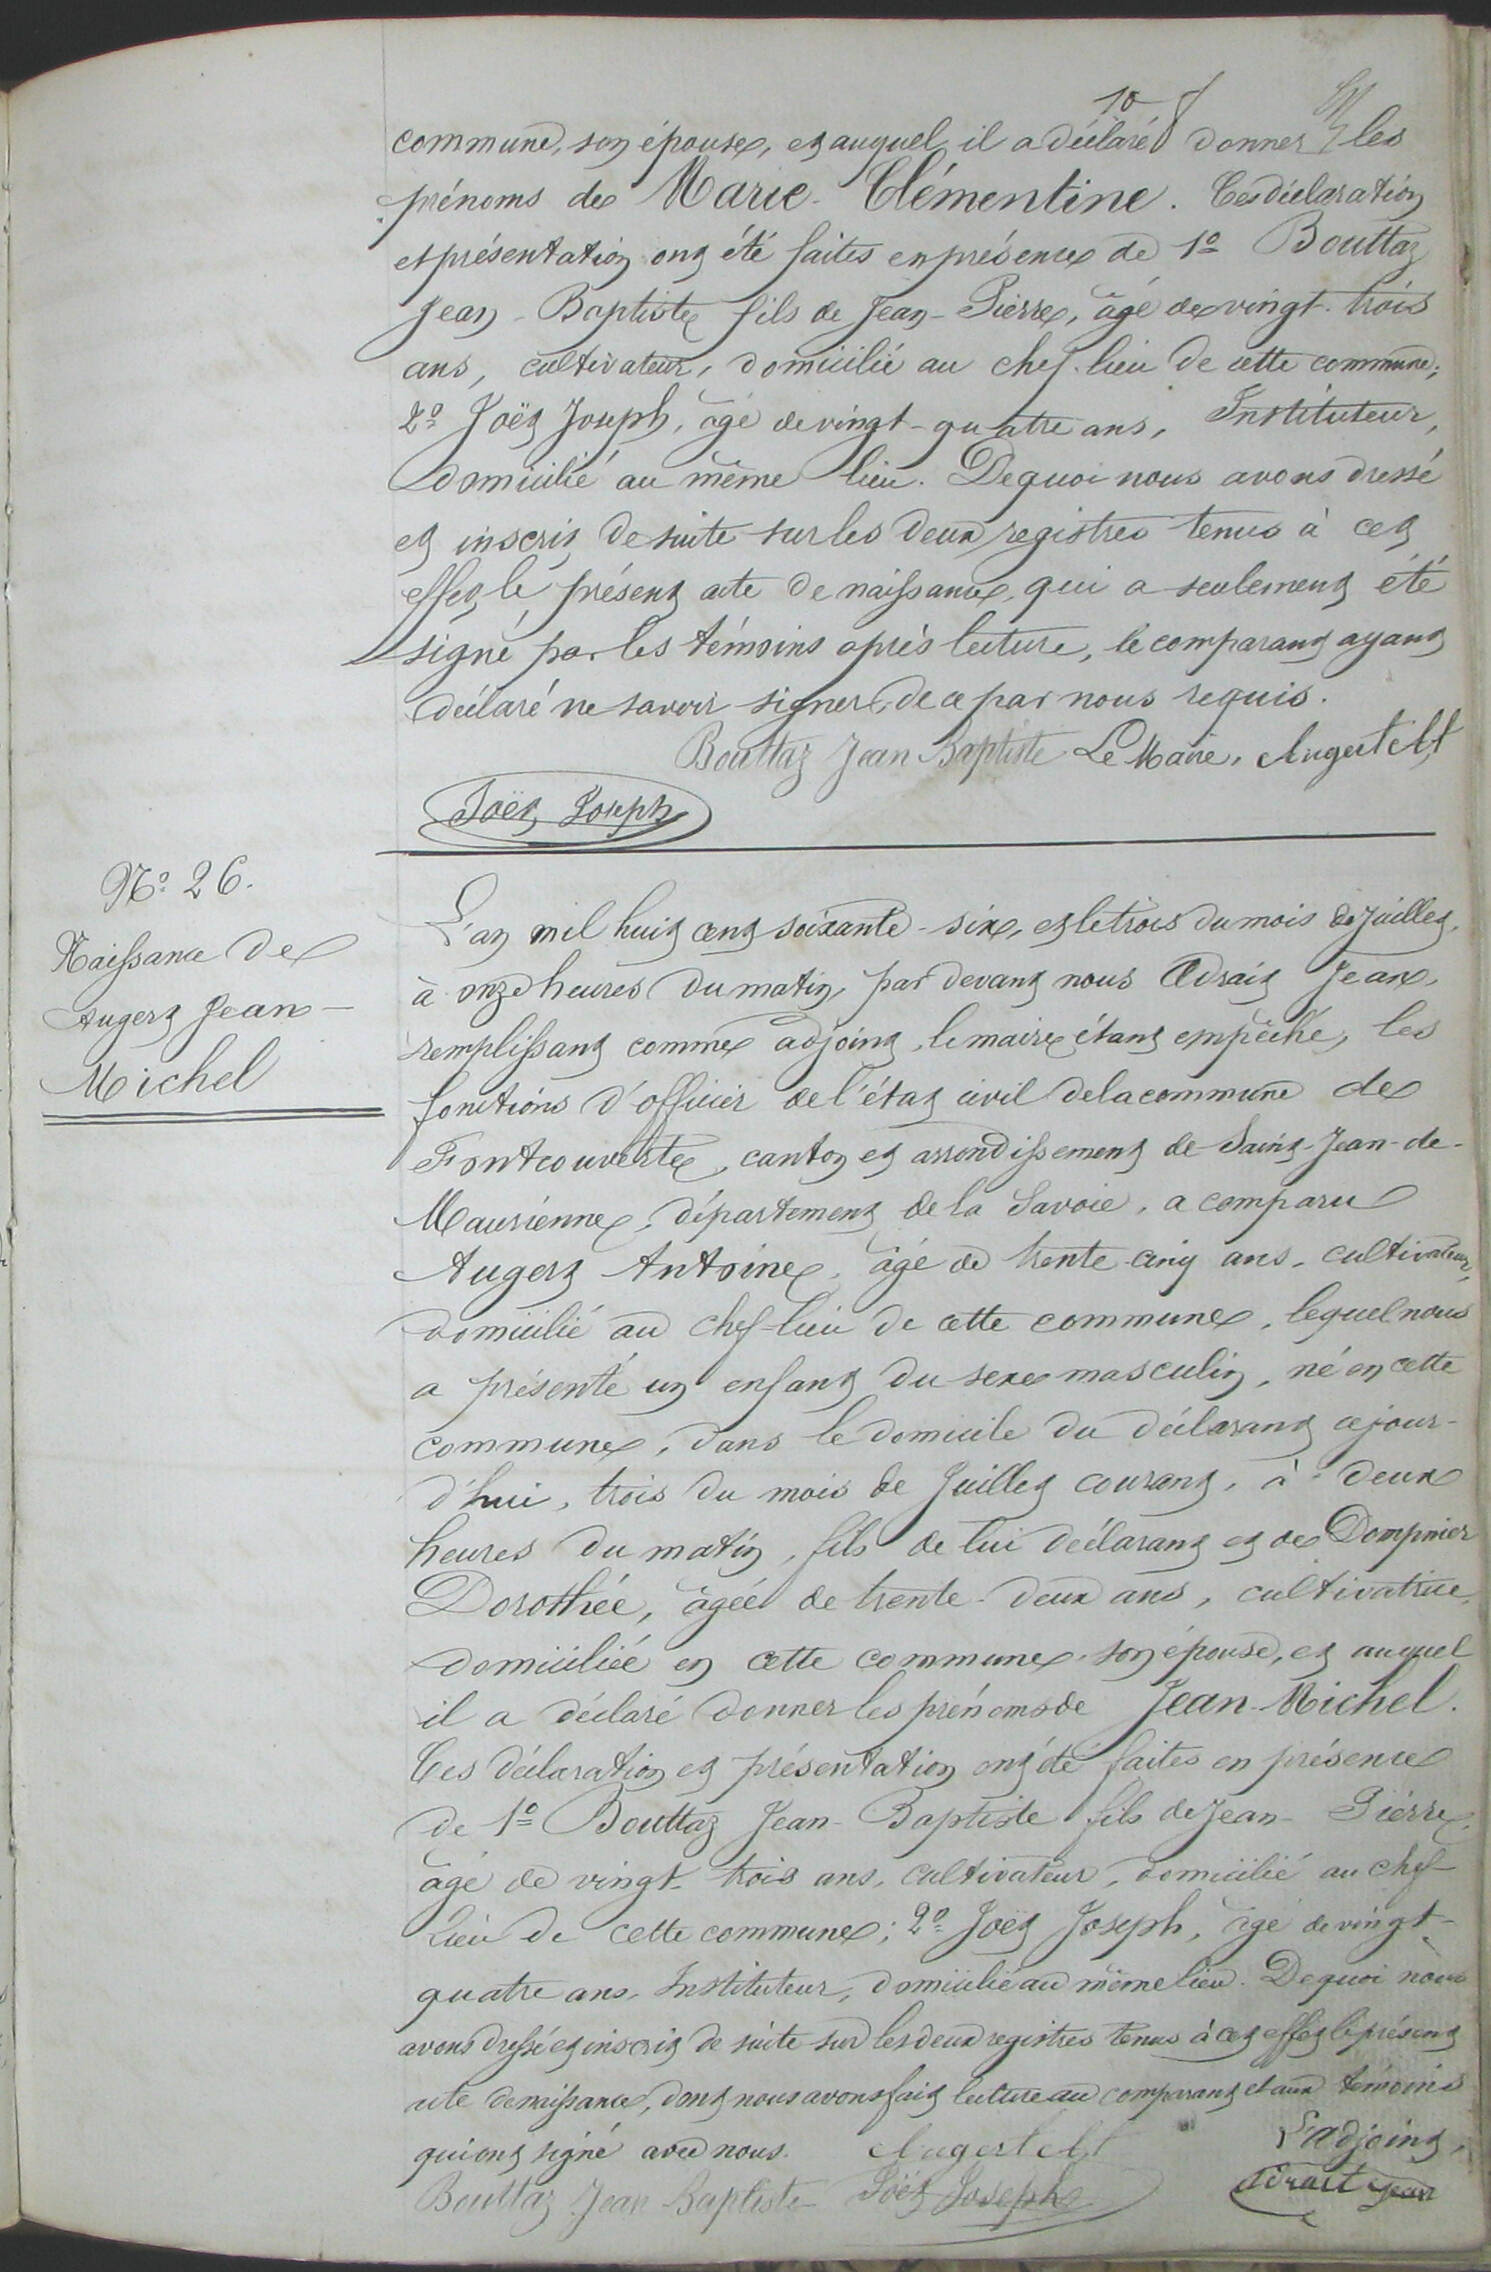 10
commune, son épouse, et auquel il a déclaré donner les
prénoms de Marie-Clémentine. Ces déclaration
et présentation ont été faites en présence de 1º Bouttaz
Jean-Baptiste fils de Jean-Pierre, âgé de vingt-trois
ans, cultivateur, domicilié au chef-lieu de cette commune;
2º Joët Joseph, âgé de vingt-quatre ans, Instituteur,
domicilié au même lieu. De quoi nous avons dressé
et inscrit de suite sur les deux registres tenus à cet
effet le présent acte de naissance, qui a seulement été
signé par les témoins après lecture, le comparant ayant
déclaré ne savoir signer, de ce par nous requis.
Bouttaz Jean Baptiste Le Maire, Augert
Joët Joseph
Nº 26.
Naissance de
Augert Jean-
Michel
L'an mil huit cent soixante-six, et le trois du mois de Juillet,
à onze heures du matin, par devant nous Adrait Jean,
remplissant comme adjoint, le maire étant empêché, les
fonctions d'officier de l'état civil de la commune de
Fontcouverte, canton et arrondissement de Saint-Jean-de-
Maurienne, département de la Savoie, a comparu
Augert Antoine, âgé de trente-cinq ans, cultivateur,
domicilié au chef-lieu de cette commune, lequel nous
a présenté un enfant du sexe masculin, né en cette
commune, dans le domicile du déclarant cejour-
d'hui, trois du mois de Juillet courant, à deux
heures du matin, fils de lui déclarant et de Dompnier
Dorothée, âgée de trente-deux ans, cultivatrice,
domiciliée en cette commune, son épouse, et auquel
il a déclaré donner les prénoms de Jean-Michel.
Ces déclaration et présentation ont été faites en présence
de 1º Bouttaz Jean-Baptiste fils de Jean-Pierre,
âgé de vingt-trois ans, cultivateur, domicilié au chef-
lieu de cette commune; 2º Joët Joseph, âgé de vingt-
quatre ans, Instituteur, domicilié au même lieu. De quoi nous
avons dressé et inscrit de suite sur les deux registres tenus à cet effet le présent
acte de naissance, dont nous avons fait lecture au comparant et aux témoins
qui ont signé avec nous. Augert L'adjoint,
Bouttaz Jean Baptiste Joët Joseph Adrait Jean